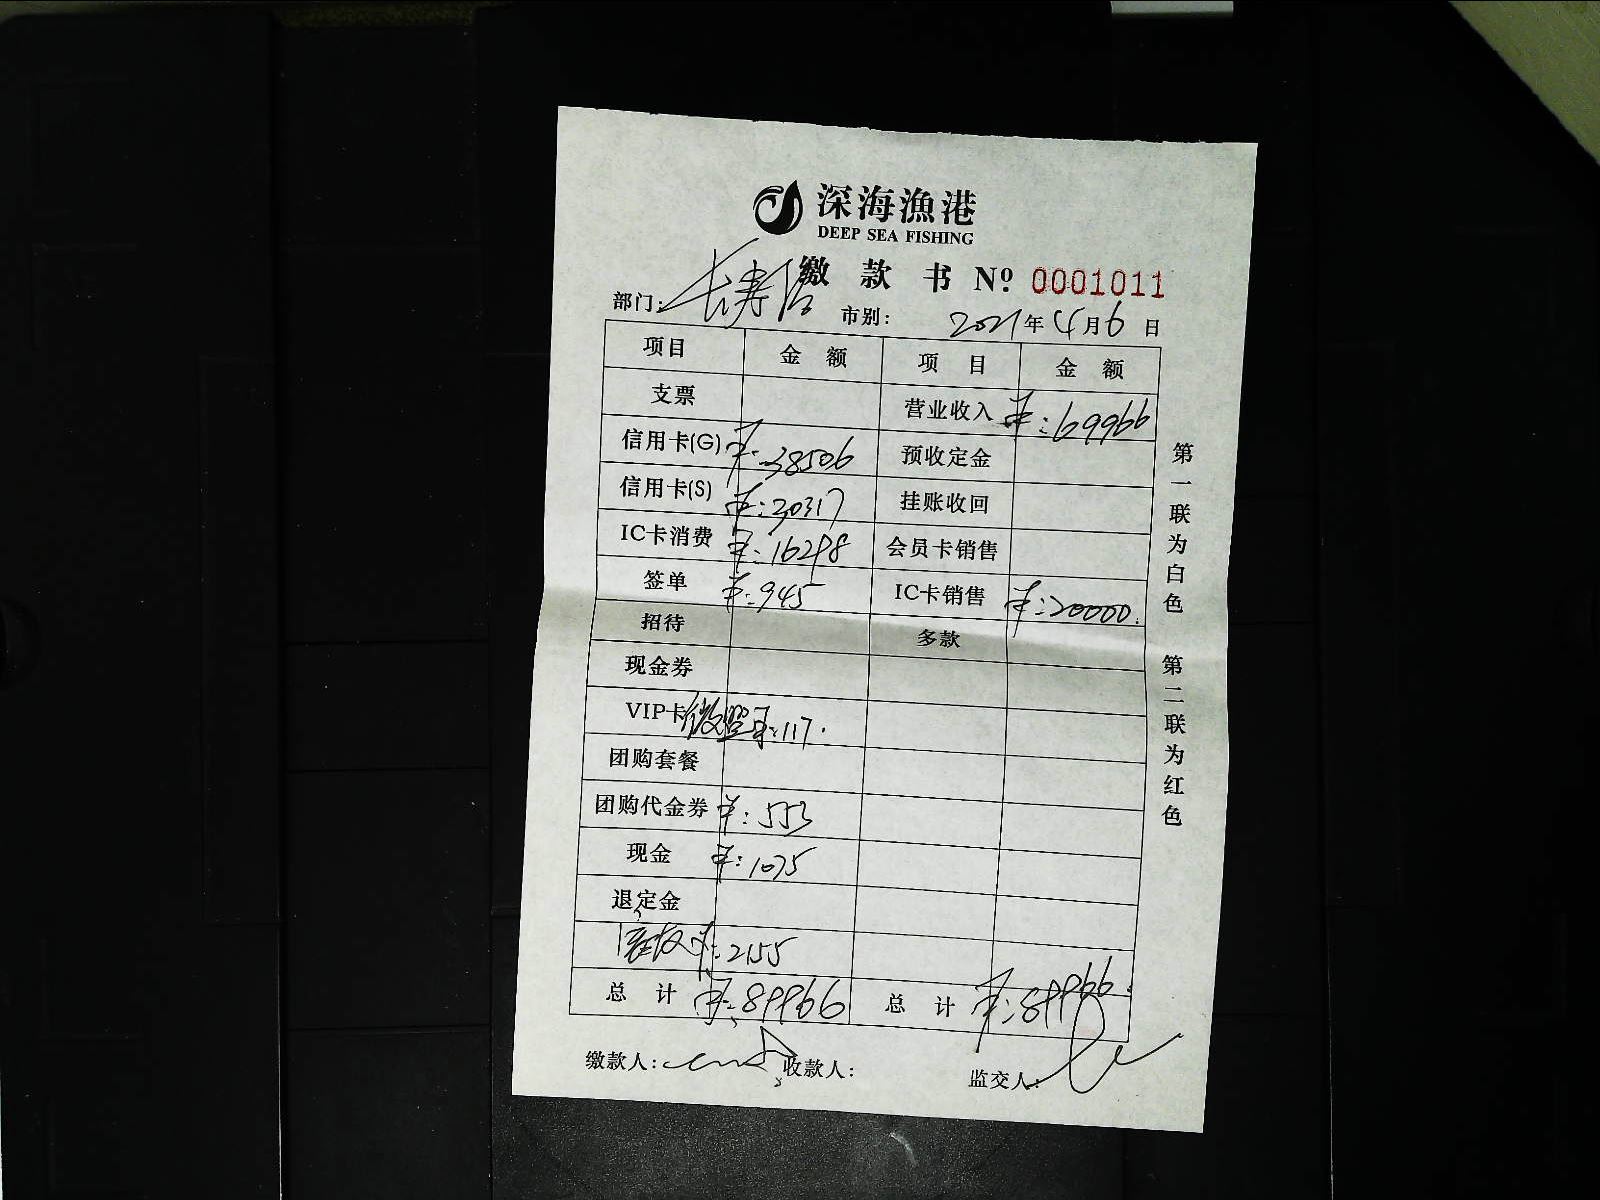 深海漁港
DEEP SEA FISHING
缴 款 书 Nº 0001011
部门: 长寿路 市别: 2021年4月6日
项目 金 额 项 目 金 额
支票 营业收入 ¥:69966
信用卡(G) ¥:38506 预收定金
信用卡(S) ¥:30317 挂账收回
IC卡消费 ¥:16298 会员卡销售
签单 ¥:945 IC卡销售 ¥:20000.
招待 多款
现金券
VIP卡 微盟 ¥:117.
团购套餐
团购代金券 ¥:553
现金 ¥:1075
退定金
¥:2155
总 计 ¥:89966 总 计 ¥:89966.
缴款人: 收款人: 监交人:
第一联为白色 第二联为红色